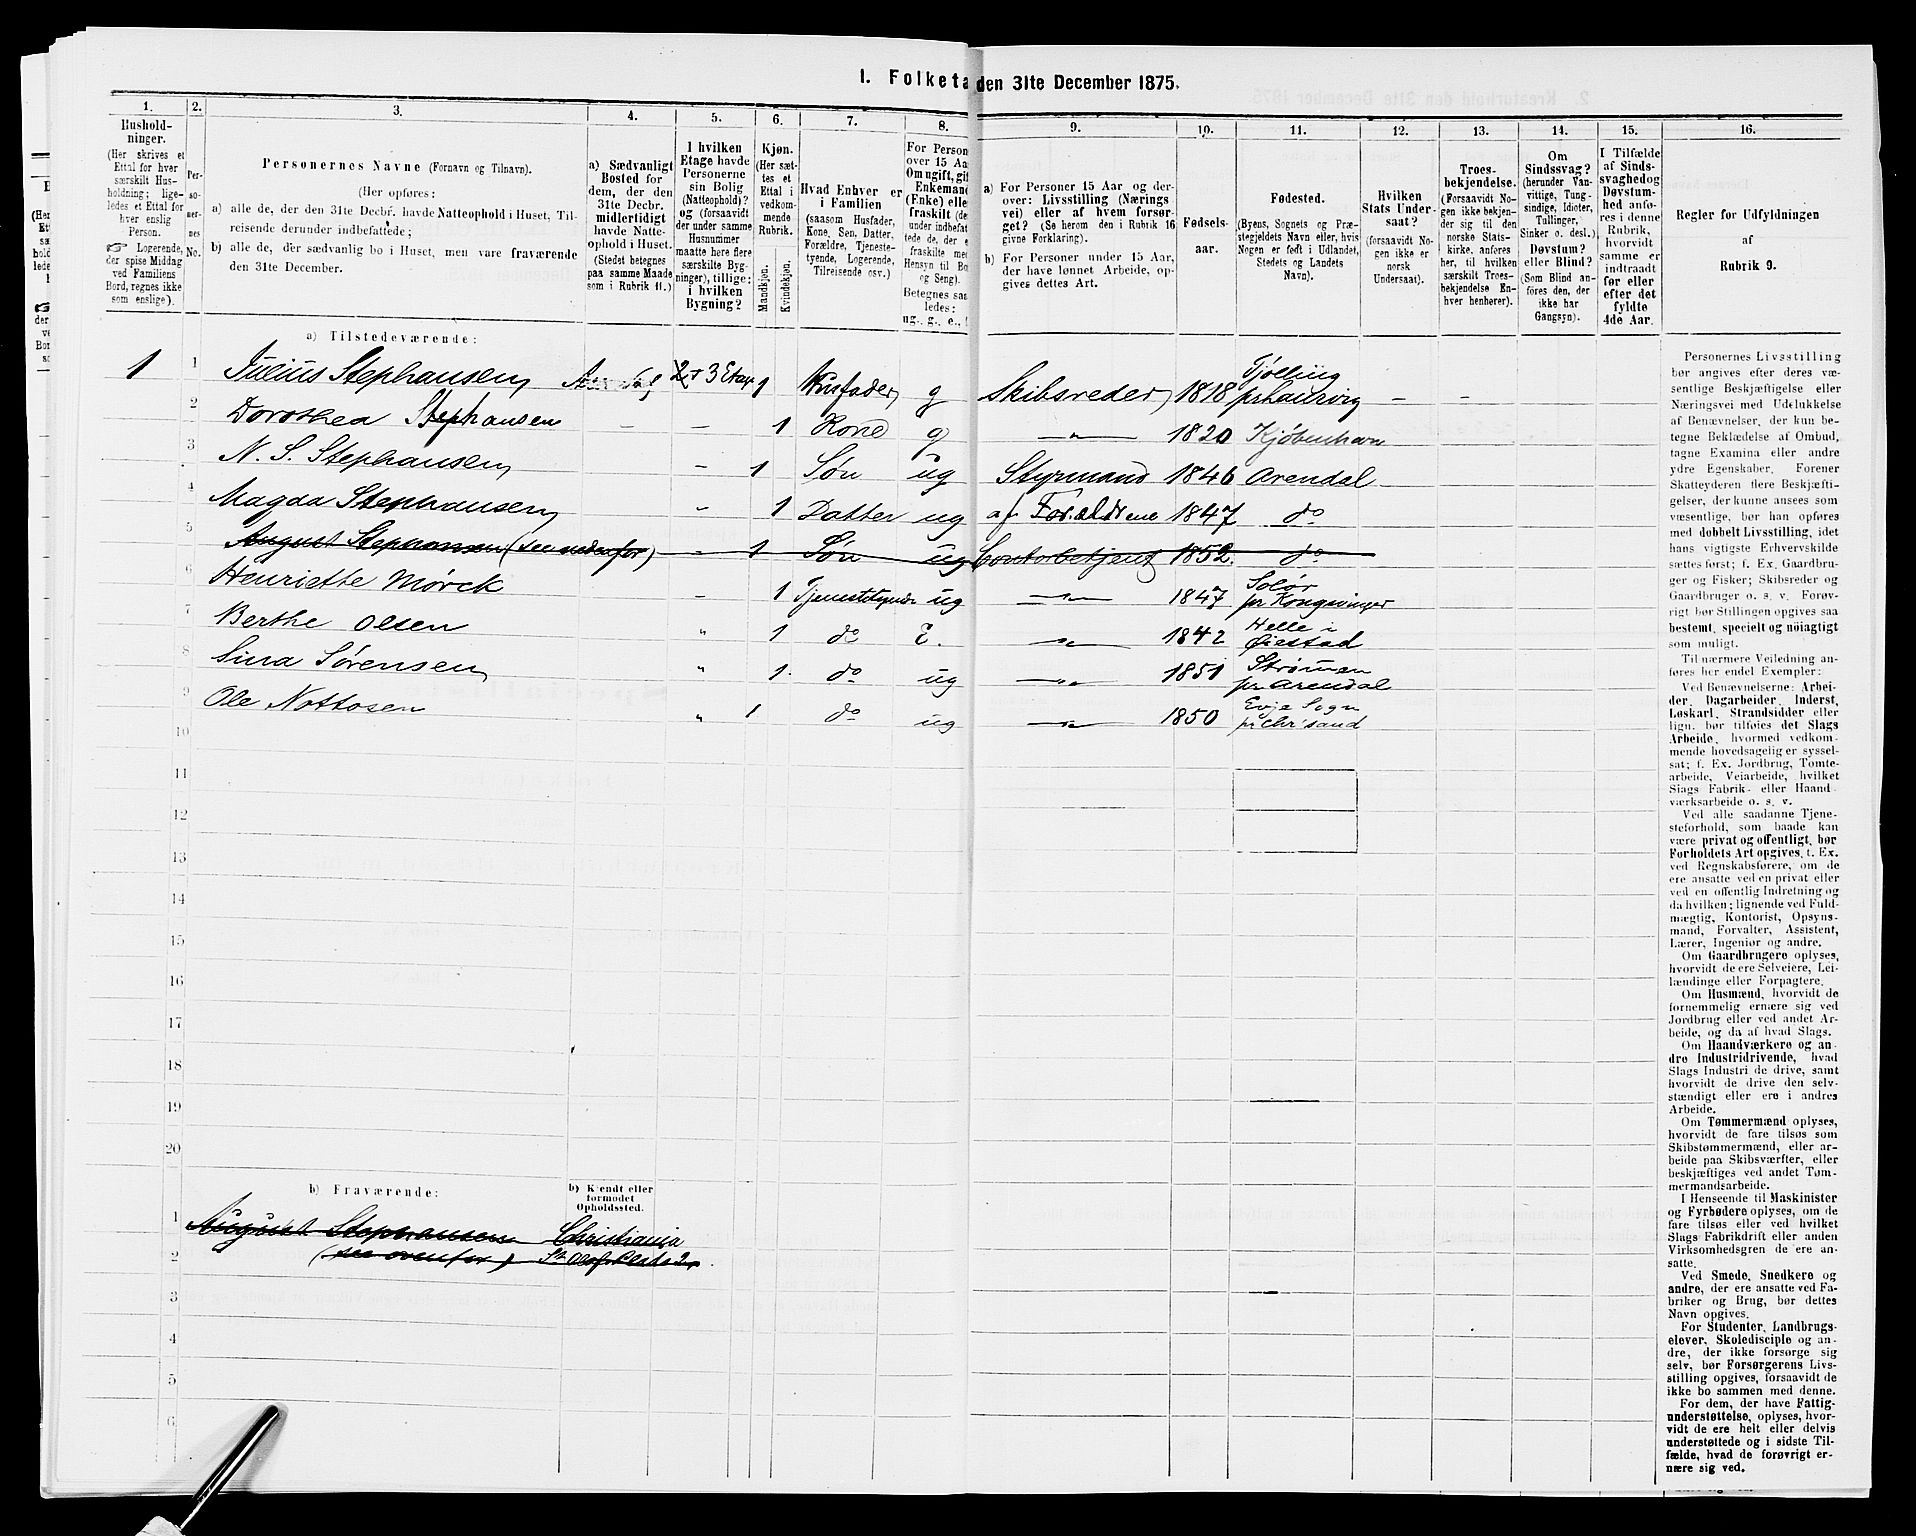 I. Folketa den 31te December 1875.
1. 2. 3. 4. 5. 6. 7. 8. 9. 10. 11. 12. 13. 14. 15. 16.
Hushold-
ninger.
(Her skrives et
Ettal for hver
særskilt Hus-
holdning; lige-
ledes et Ettal for
hver enslig
Person.
Logerende,
der spise Middag
ved Familiens
Bord, regnes ikke
som enslige).
Per-
so-
ner-
nes
No.
Personernes Navne (Fornavn og Tilnavn).
(Her opføres:
a) alle de, der den 31te Decbr. havde Natteophold i Huset, Til-
reisende derunder indbefattede;
b) alle de, der sædvanlig bo i Huset, men vare fraværende
den 31te December.
a) Sædvanligt
Bosted for
dem, der den
31te Decbr.
midlertidigt
havde Natte-
ophold i Huset.
(Stedet betegnes
paa samme Maade
som i Rubrik 11.)
I hvilken
Etage havde
Personerne
sin Bolig
(Natteophold)?
og (forsaavidt
der under samme
Husnummer
maatte høre flere
særskilte Byg-
ninger), tillige:
i hvilken
Bygning?
Kjøn.
(Her sæt-
tes et
Ettal i
vedkom-
mende
Rubrik.
Mandkjøn.
Kvindekjøn.
Hvad Enhver er
i Familien
(saasom Husfader,
Kone, Søn, Datter,
Forældre, Tjeneste-
tyende, Logerende,
Tilreisende osv.)
For Person
over 15 Aa
Om ugift, gif
Enkemand
(Enke) elle
fraskilt (de
under indbefat
tede de, der e
fraskilte med
Hensyn til Bo
og Seng).
Betegnes saa
ledes:
ug., g., e.,
a) For Personer 15 Aar og der-
over: Livsstilling (Nærings
vei) eller af hvem forsør-
get? (Se herom den i Rubrik 16
givne Forklaring).
b) For Personer under 15 Aar,
der have lønnet Arbeide, op-
gives dettes Art.
Fødsels-
aar.
Fødested.
(Byens, Sognets og Præ-
stegjeldets Navn eller, hvis
Nogen er født i Udlandet,
Stedets og Landets
Navn).
Hvilken
Stats Under-
saat?
(forsaavidt No-
gen ikke er
norsk
Undersaat).
Troes-
bekjendelse.
(Forsaavidt No-
gen ikke bekjen-
der sig til den
norske Stats-
kirke, anføres
her, til hvilken
særskilt Troes-
bekjendelse En-
hver henhører).
Om
Sindssvag?
(herunder Van-
vittige, Tung-
sindige, Idioter,
Tullinger,
Sinker o. desl.)
Døvstum?
eller Blind?
(Som Blind an-
føres den, der
ikke har
Gangsyn).
I Tilfælde
af Sinds-
svaghed og
Døvstum-
hed anfø-
res i denne
Rubrik,
hvorvidt
samme er
indtraadt
før eller
efter det
fyldte
4de Aar.
Regler for Udfyldningen
af
Rubrik 9.
a) Tilstedeværende:
1 1 Julius Stephansen 2 + 3 Etage 1 Husfader g Skibsreder 1818 Tjølling pr Laurvig – –
2 Dorothea Stephansen – – 1 Kone g – " – 1820 Kjøbenhavn
3 N. S. Stephansen – 1 Søn ug Styrmand 1846 Arendal
4 Magda Stephansen – 1 Datter ug af Forældrene 1847 do
5 August Stephansen (see nedenfor) – 1 Søn ug Contorbetjent 1852 do
6 Henriette Mørck – 1 Tjenestetyende ug – " – 1847 Solør pr Kongsvinger
7 Berthe Olsen " 1 do E. – " – 1842 Helle i Øiestad
8 Sina Sørensen " 1 do ug – " – 1851 Strømmen pr Arendal
9 Ole Nottosen " 1 do ug – " – 1850 Evje Sogn pr Chr'sand
10
11
12
13
14
15
16
17
18
19
20
b) Fraværende:
b) Kjendt eller
formodet
Opholdssted.
1 August Stephansen Christiania
2 (see ovenfor) St Olafs Plads 2
3
4
5
6
Personernes Livsstilling
bør angives efter deres væ-
sentlige Beskjæftigelse eller
Næringsvei med Udelukkelse
af Benævnelser, der kun be-
tegne Beklædelse af Ombud,
tagne Examina eller andre
ydre Egenskaber. Forener
Skatteyderen flere Beskjæfti-
gelser, der kunne ansees som
væsentlige, bør han opføres
med dobbelt Livsstilling, idet
hans vigtigste Erhvervskilde
sættes først; f. Ex. Gaardbru-
ger og Fisker; Skibsreder og
Gaardbruger o. s. v. Forøv-
rigt bør Stillingen opgives saa
bestemt, specielt og nöiagtigt
som muligt.
Til nærmere Veiledning an-
føres her endel Exempler:
Ved Benævnelserne: Arbei-
der, Dagarbeider, Inderst,
Løskarl, Strandsidder eller
lign. bør tilføies det Slags
Arbeide, hvormed vedkom-
mende hovedsagelig er syssel-
sat; f. Ex. Jordbrug, Tomte-
arbeide, Veiarbeide, hvilket
Slags Fabrik- eller Haand-
værksarbeide o. s. v.
Ved alle saadanne Tjene-
steforhold, som baade kan
være privat og offentligt, bør
Forholdets Art opgives, t. Ex.
ved Regnskabsførere, om de
ere ansatte ved en privat eller
ved en offentlig Indretning og
da hvilken; lignende ved Fuld-
mægtig, Kontorist, Opsyns-
mand, Forvalter, Assistent,
Lærer, Ingeniør og andre.
Om Gaardbrugere oplyses,
hvorvidt de ere Selveiere, Lei-
lændinge eller Forpagtere.
Om Husmænd, hvorvidt de
fornemmelig ernære sig ved
Jordbrug eller ved andet Ar-
beide, og da af hvad Slags.
Om Haandværkere og an-
dre Industridrivende, hvad
Slags Industri de drive, samt
hvorvidt de drive den selv-
stændigt eller ere i andres
Arbeide.
Om Tømmermænd oplyses,
hvorvidt de fare tilsøs som
Skibstømmermænd, eller ar-
beide paa Skibsværfter, eller
beskjæftiges ved andet Tøm-
mermandsarbeide.
I Henseende til Maskinister
og Fyrbødere oplyses, om de
fare tilsøs eller ved hvilket
Slags Fabrikdrift eller anden
Virksomhedsgren de ere an-
satte.
Ved Smede, Snedkere og
andre, der ere ansatte ved Fa-
briker og Brug, bør dettes
Navn opgives.
For Studenter, Landbrugs-
elever, Skoledisciple og an-
dre, der ikke forsørge sig
selv, bør Forsørgerens Livs-
stilling opgives, forsaavidt de
ikke bo sammen med denne.
For dem, der have Fattig-
understøttelse, oplyses, hvor-
vidt de ere helt eller delvis
understøttede og i sidste Til-
fælde, hvad de forøvrigt er-
nære sig ved.